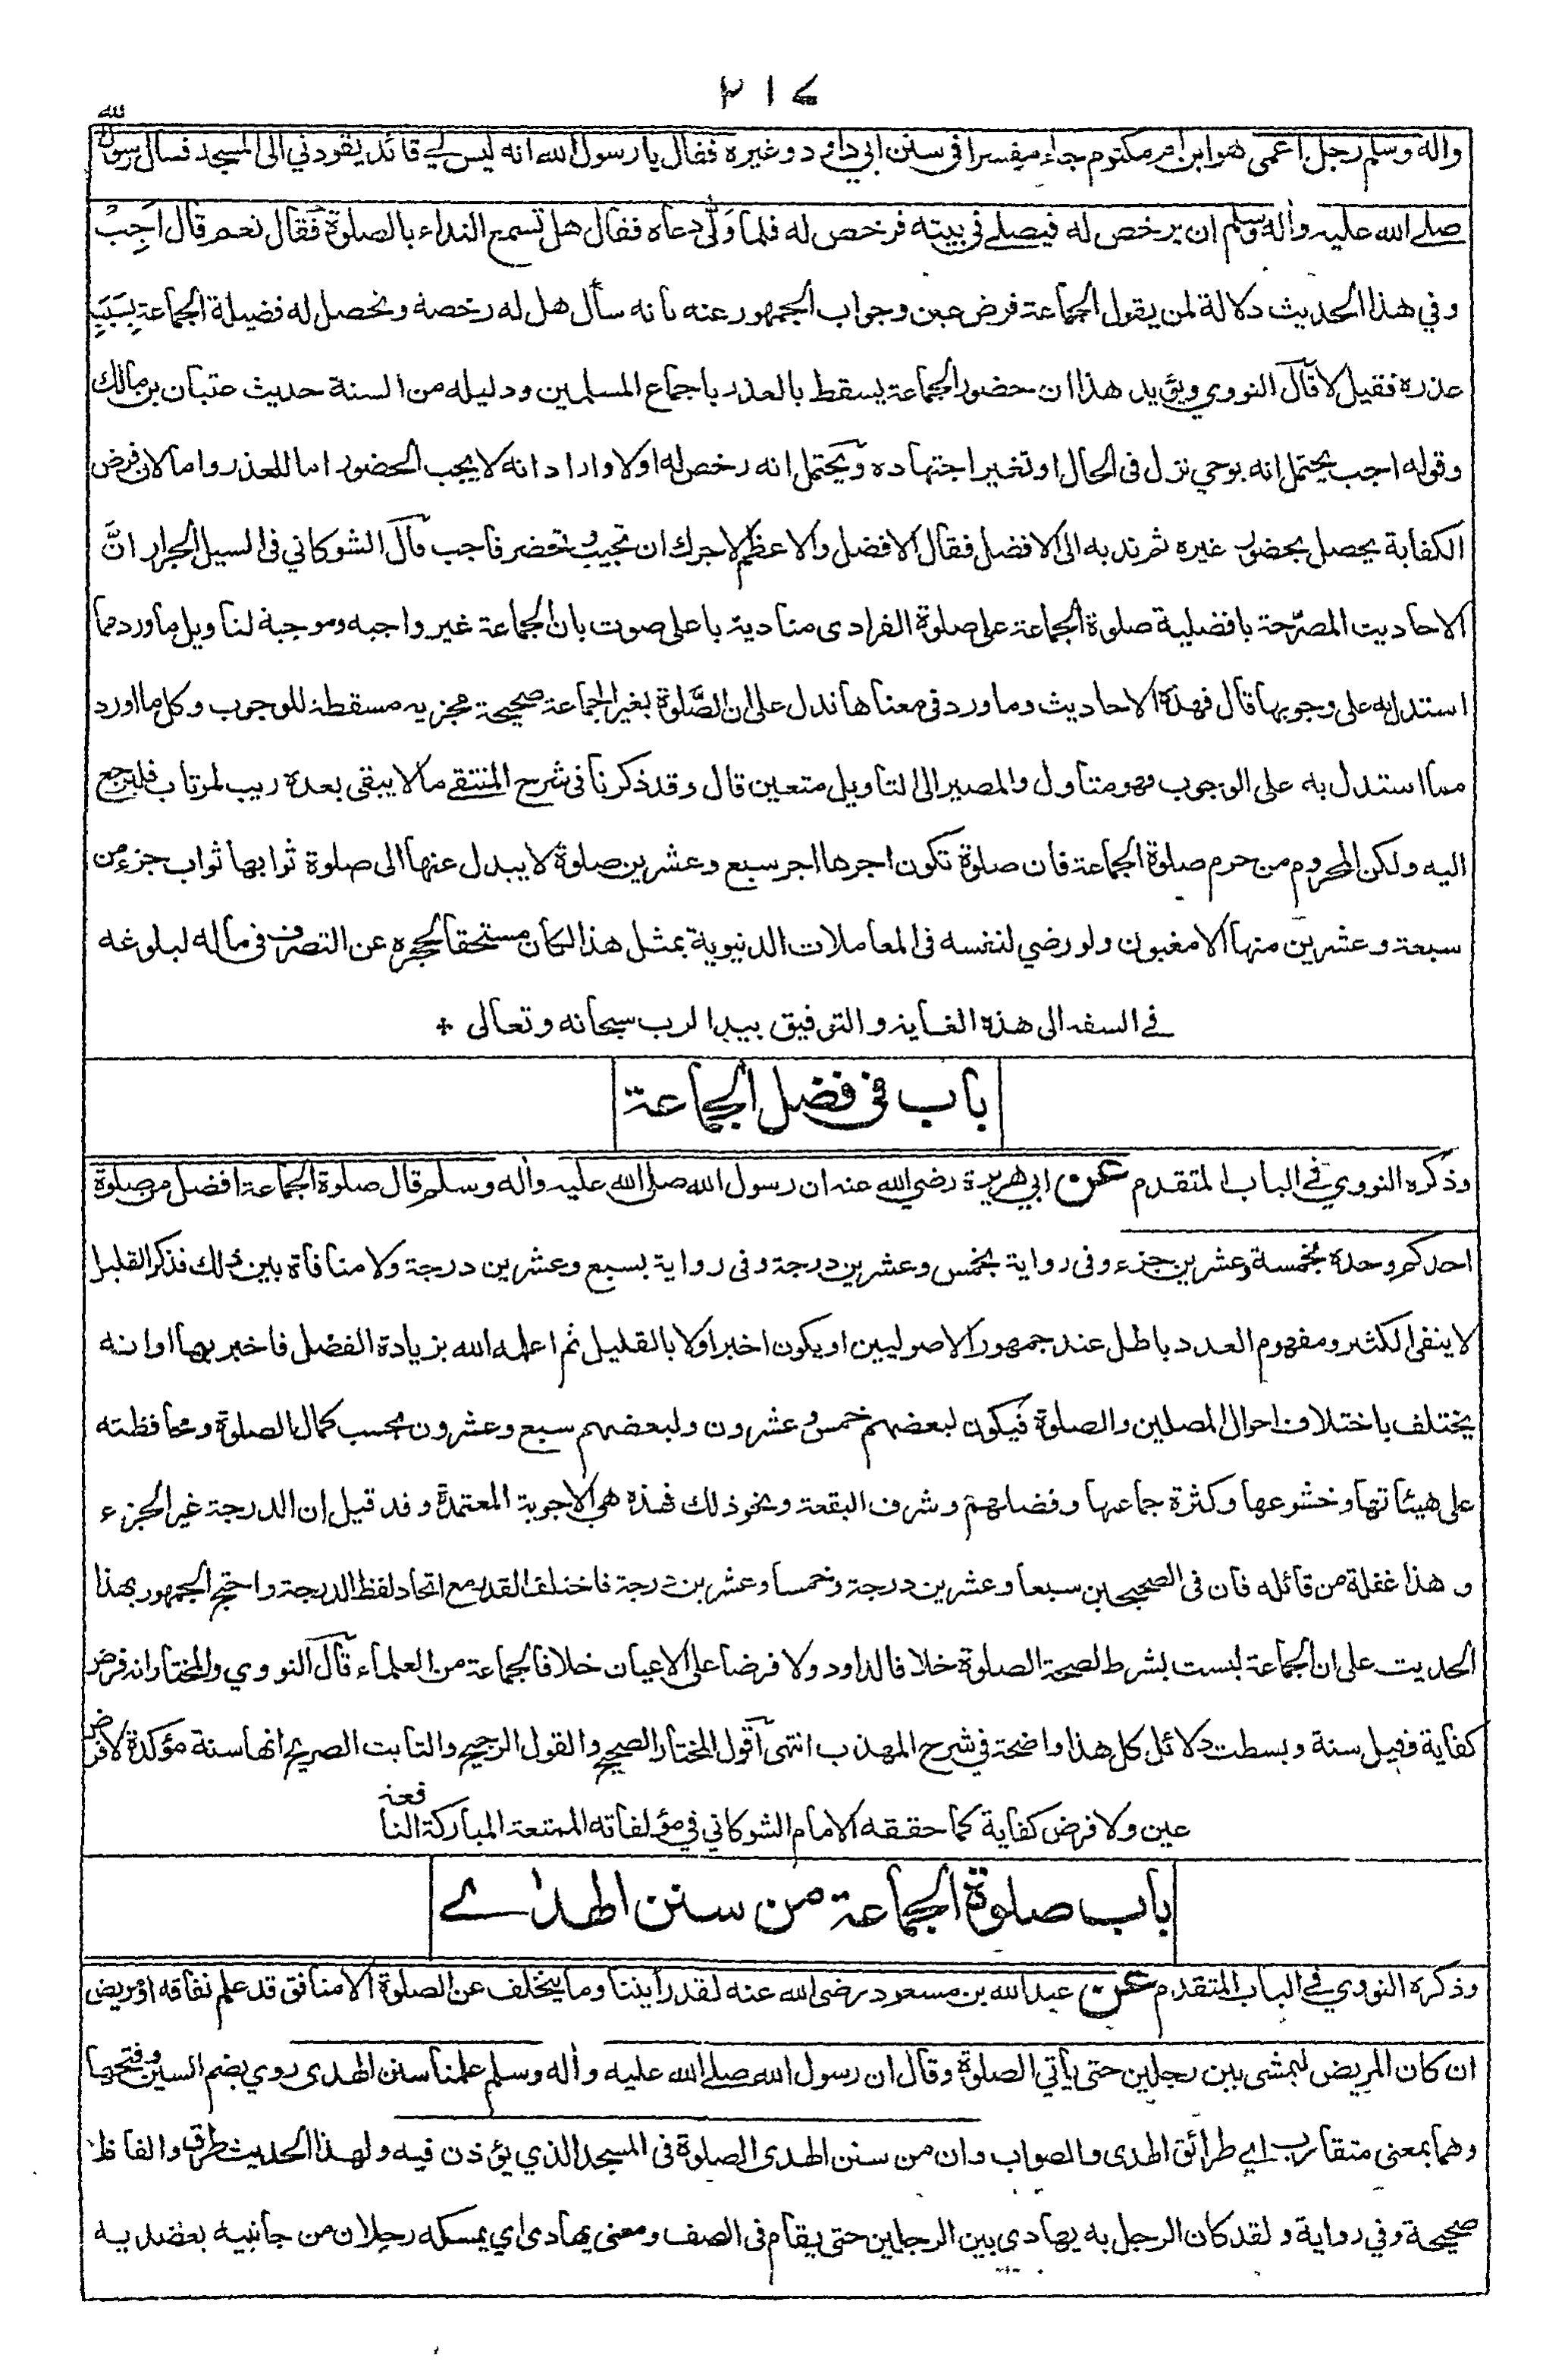 ٢١٤
واله وسلم رجل اعمى هو ابن ام مكتوم جاء مفسرا في سنن ابي داود وغيره فقال يا رسول الله انه ليس لي قائد يقودني الى المسجد فسال رسول الله
صلى الله عليه واله وسلم ان يرخص له فيصلي في بيته فرخص له فلما ولّى دعاه فقال هل تسمع النداء بالصلوة فقال نعم قال اَجِبْ
وفي هذا الحديث دلالة لمن يقول الجماعة فرض عين وجواب الجمهور عنه بانه سأل هل له رخصة وتحصل له فضيلة الجماعة بِسَبَبِ
عذره فقيل لا قال النووي ويؤيد هذا ان حضور الجماعة يسقط بالعذر باجماع المسلمين ودليله من السنة حديث عتبان بن مالك
وقوله اجب يحتمل انه بوحي نزل فى الحال او تغير اجتهاده ويحتمل انه رخص له اولا واراد انه لا يجب الحضور اما للعذر واما لان فرض
الكفاية يحصل بحضور غيره ثم ندبه الى الافضل فقال الافضل والاعظم لاجرك ان تجيب وتحضر فاجب قال الشوكاني فى السيل الجرار انَّ
الاحاديث المصرّحة بافضلية صلوة الجماعة على صلوة الفرادى منادية باعلى صوت بان الجماعة غير واجبه وموجبة لتاويل ما ورد مما
استدل به على وجوبها قال فهذه الاحاديث وما ورد في معناها تدل على ان الصَّلوة بغير الجماعة صحيحة مجزيه مسقطة للوجوب وكل ما اورد
مما استدل به على الوجوب فهو متاول والمصير الى التاويل متعين قال وقد ذكرنا فى شرح المنتقى ما لا يبقى بعده ريب لمرتاب فليرجع
اليه ولكن المحروم من حرم صلوة الجماعة فان صلوة تكون اجرها اجر سبع وعشرين صلوة لا يبدل عنها الى صلوة ثوابها ثواب جزء من
سبعة وعشرين منها الا مغبون ولو رضي لنفسه فى المعاملات الدنيوية بمثل هذا لكان مستحقا لحجره عن التصرف في ماله لبلوغه
في السفه الى هذه الغاية والتوفيق بيد الرب سبحانه وتعالى +
باب في فضل الجماعة
وذكره النووي في الباب المتقدم عن ابي هريرة رضي الله عنه ان رسول الله صلى الله عليه واله وسلم قال صلوة الجماعة افضل من صلوة
احدكم وحده بخمسة وعشرين جزء وفى رواية بخمس وعشرين درجة وفى رواية بسبع وعشرين درجة ولا منافاة بين ذلك فذكر القليل
لا ينفى الكثير ومفهوم العدد باطل عند جمهور الاصوليين او يكون اخبر اولا بالقليل ثم اعلمه الله بزيادة الفضل فاخبر بها او انه
يختلف باختلاف احوال المصلين والصلوة فيكون لبعضهم خمس وعشرون ولبعضهم سبع وعشرون بحسب كمال الصلوة ومحافظته
على هيئاتها وخشوعها وكثرة جماعها وفضلهم وشرف البقعة ونحو ذلك فهذه هي الاجوبة المعتمدة وقد قيل ان الدرجة غير الجزء
وهذا غفلة من قائله فان فى الصحيحين سبعا وعشرين درجة وخمسا وعشرين درجة فاختلف القدر مع اتحاد لفظ الدرجة واحتج الجمهور بهذا
الحديث على ان الجماعة ليست بشرط لصحة الصلوة خلافا لداود ولا فرضا على الاعيان خلافا لجماعة من العلماء قال النووي والمختار انه فرض
كفاية وقيل سنة وبسطت دلائل كل هذا واضحة في شرح المهذب انتهى اقول المختار الصحيح والقول الرجيح والثابت الصريح انها سنة مؤكدة لا فرض
عين ولا فرض كفاية كما حققه الامام الشوكاني في مؤلفاته الممتعة المباركة النافعة
باب صلوة الجماعة من سنن الهدى
وذكره النووي في الباب المتقدم عن عبد الله بن مسعود رضى الله عنه لقد رأيتنا وما يتخلف عن الصلوة الا منافق قد علم نفاقه او مريض
ان كان المريض ليمشى بين رجلين حتى يأتي الصلوة وقال ان رسول الله صلى الله عليه واله وسلم علمنا سنن الهدى روي بضم السين وفتحها
وهما بمعنى متقارب اي طرائق الهدى والصواب وان من سنن الهدى الصلوة فى المسجد الذي يؤذن فيه ولهذا الحديث طرق والفاظ
صحيحة وفي رواية ولقد كان الرجل به يهادي بين الرجلين حتى يقام فى الصف ومعنى يهادى اي يمسكه رجلان من جانبيه بعضديه